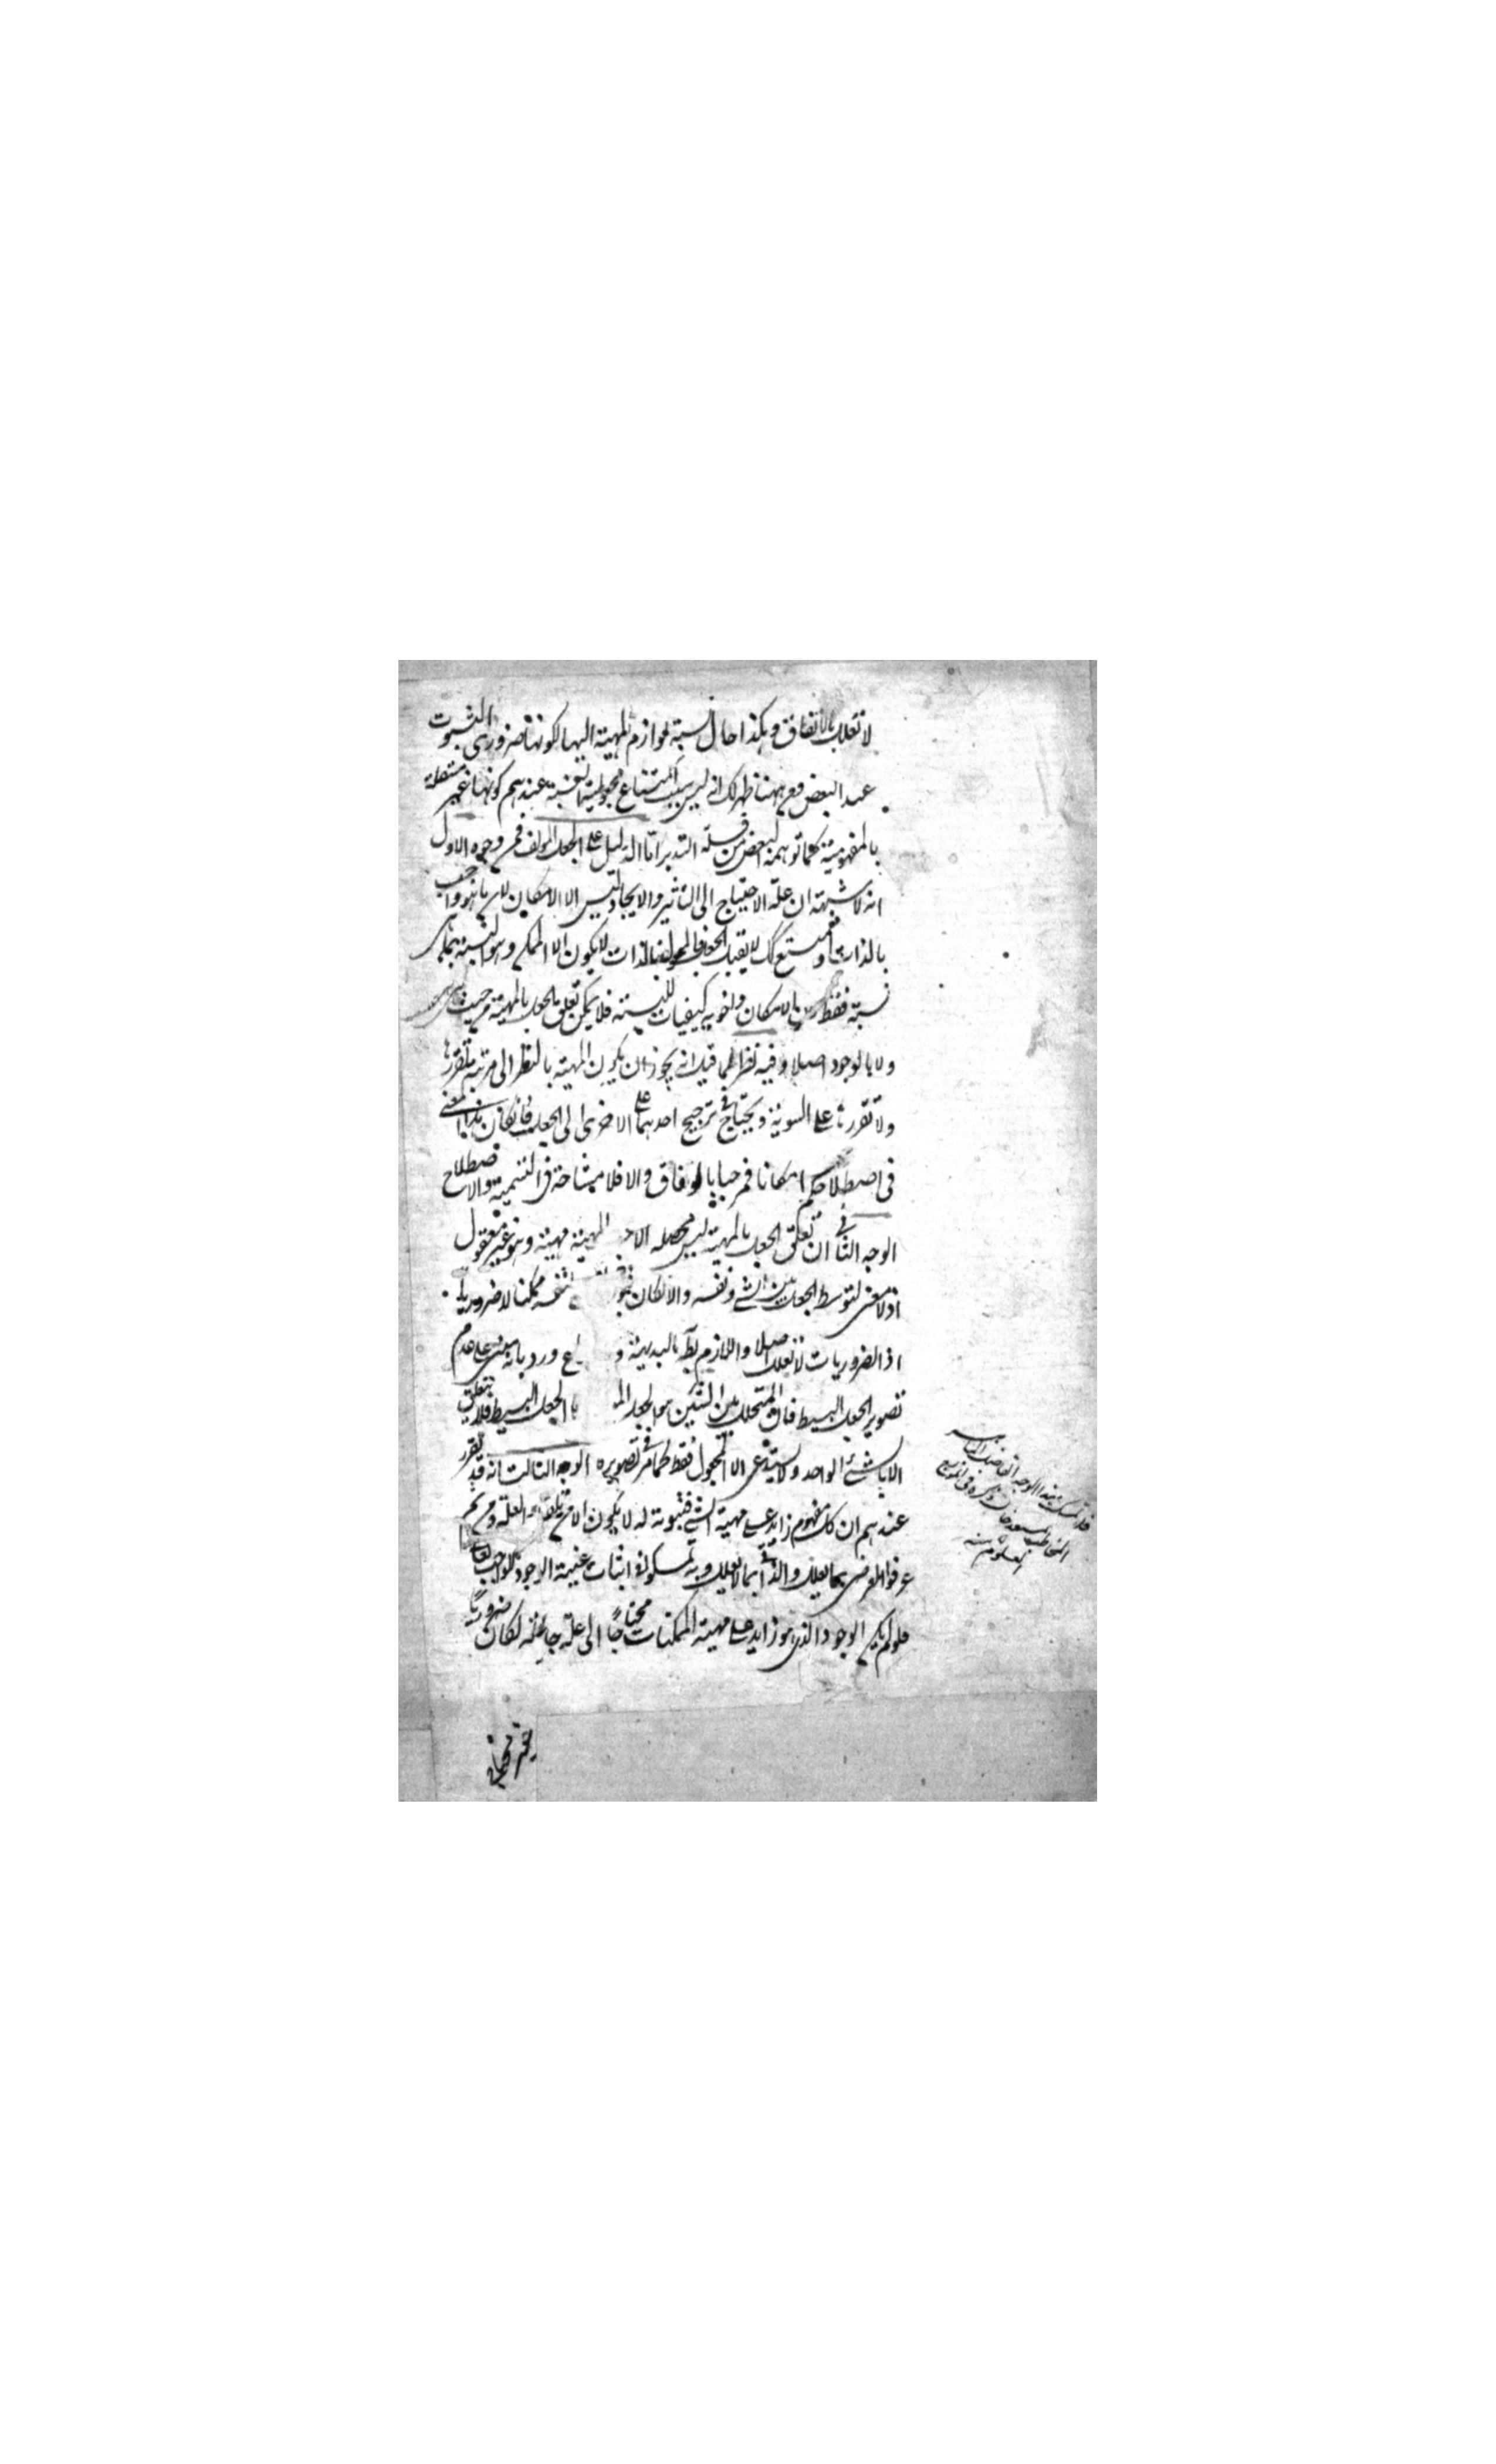 لا تعلل بالاتفاق وهكذا حال نسبة لوازم المهية اليها لكونها ضرورى الثبوت
عند البعض فمع ههنا ظهر لك انه ليس سبب امتناع مجعولية النسبة عندهم كونها غير مستقلة
بالمفهومية كما توهمه البعض من قلة التدبر اما الدليل على الجعل المولف فمن وجوه الاول
انه لا شبهة ان علة الاحتياج الى التاثير والايجاد ليس الا الامكان لان ما هو واجب
بالذات او ممتنع كك لا يقبل الجعل بالذات لا يكون الا الممكن وهو النسبة
نسبة فقط لان الامكان واخويه كيفيات للنسبة فلا يمكن تعلق الجعل بالمهية من حيث هى
ولا بالوجود اصلا وفيه نظر لما قيل انه يجوز ان يكون المهية بالنظر الى مرتبة تقررها
ولا تقررها على السوية ويحتاج فى ترجيح احدهما على الاخرى الى الجعل فان كان هذا المعنى
فى اصطلاحكم امكانا فمرحبا بالوفاق والا فلا مشاحة فى التسمية والاصطلاح
الوجه الثانى ان تعلق الجعل بالمهية ليس محصله الا المهية مهية وهو غير معقول
اذ لا معنى لتوسط الجعل بين الشئ ونفسه والا لكان ممكنا لا ضروريا
اذ الضروريات لا تعلل اصلا واللازم بط بالبديهة و ورد بانه مبنى على عدم
تصوير الجعل البسيط فان المتخلل بين الشيئين هو الجعل الجعل البسيط فلا يتعلق
الا بالشئ الواحد ولا يستدعى الا المجعول فقط كما مر فى تصويره الوجه الثالث انه قد تقرر
عندهم ان كل مفهوم زايد على مهية الشئ فثبوته له لا يكون الا من تلقاء العلة ومن ثم
عرفوا العرضى بما يعلل والذاتى بما لا يعلل وبه تمسكوا فى اثبات عينية الوجود للواجب تعالى
فلو لم يكن الوجود الذى هو زايد على مهية الممكنات محتاجا الى علة جاعلة لكان ضروريا
قد تمسك بهذا الوجه الفاضل